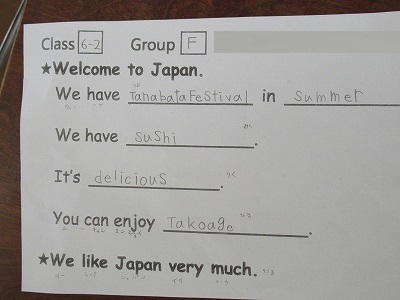 Class 6-2 Group F
★Welcome to Japan.
We have TanabataFeStival in Summer
We have SuShi.
It's deliciouS.
You can enjoy Takoage.
★We like Japan very much.